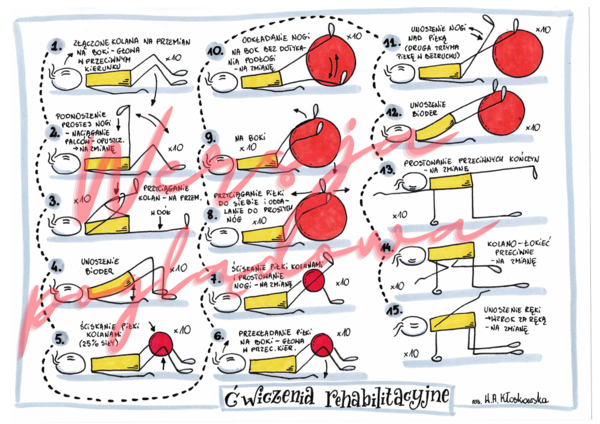 1.
ZŁĄCZONE KOLANA NA PRZEMIAN
NA BOKI - GŁOWA
W PRZECIWNYM
KIERUNKU
×10
2.
PODNOSZENIE
PROSTEJ NOGI
- NACIĄGANIE
PALCÓW - OPUSZCZ.
→ NA ZMIANĘ
×10
3.
×10
PRZYCIĄGANIE
KOLAN - NA PRZEM.
W DÓŁ
4.
UNOSZENIE
BIODER
×10
5.
ŚCISKANIE PIŁKI
KOLANAMI
(25% SIŁY)
×10
6.
PRZEKŁADANIE PIŁKI
NA BOKI - GŁOWA
W PRZEC. KIER.
×10
7.
ŚCISKANIE PIŁKI KOLANAMI
I PROSTOWANIE
NOGI - NA ZMIANĘ
×10
8.
PRZYCIĄGANIE PIŁKI
DO SIEBIE I ODDA-
LANIE DO PROSTYCH
NÓG
×10
9.
NA BOKI
×10
10.
ODKŁADANIE NOGI
NA BOK BEZ DOTYKA-
NIA PODŁOGI
- NA ZMIANĘ
×10
11.
UNOSZENIE NOGI
NAD PIŁKĄ
(DRUGA TRZYMA
PIŁKĘ W BEZRUCHU)
×10
12.
UNOSZENIE
BIODER
×10
13.
PROSTOWANIE PRZECIWNYCH KOŃCZYN
- NA ZMIANĘ
×10
14.
KOLANO - ŁOKIEĆ
PRZECIWNE
- NA ZMIANĘ
×10
15.
UNOSZENIE RĘKI
→ WZROK ZA RĘKĄ
- NA ZMIANĘ
×10
Ćwiczenia rehabilitacyjne
RYS. H.A. Kłoskowska
Wersja
poglądowa